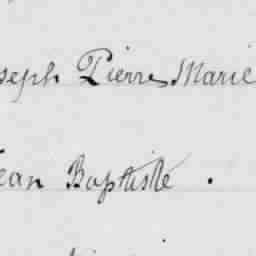 seph Pierre Marie
ean Baptiste .